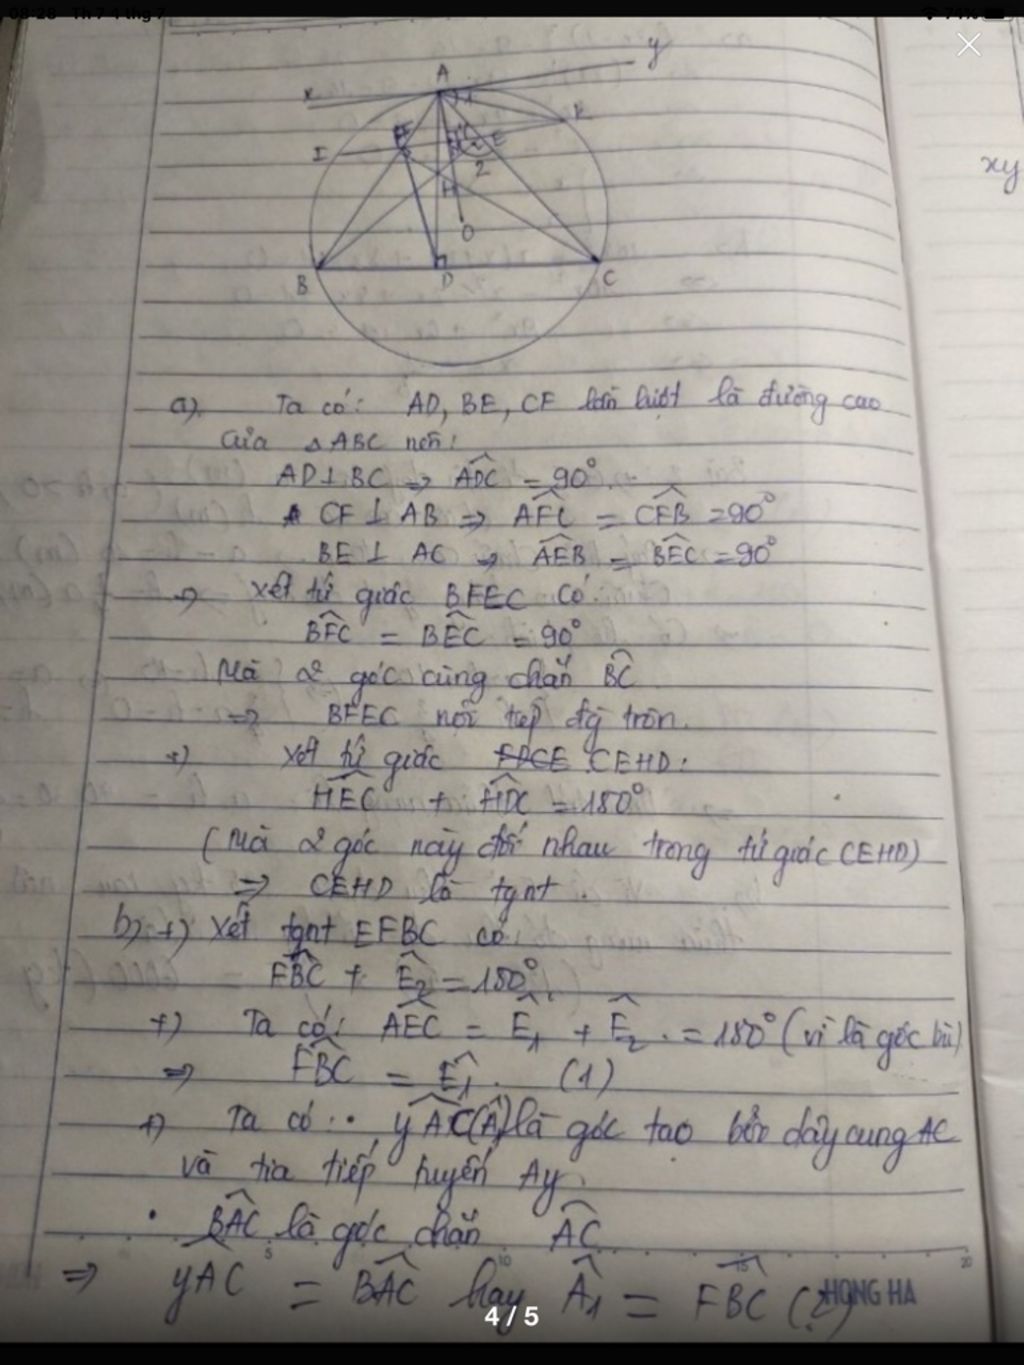 08:28 Th 7 4 thg 7
74%
A
y
x
K
I
F
E
2
H
O
B
D
C
xy
a) Ta có: AD, BE, CF lần lượt là đường cao
của △ABC nên:
AD⊥BC ⇒ ADC = 90°
CF ⊥ AB ⇒ AFC = CFB = 90°
BE ⊥ AC ⇒ AEB = BEC = 90°
⇒ Xét tứ giác BFEC có
BFC = BEC = 90°
Mà 2 góc cùng chắn BC
⇒ BFEC nội tiếp đg tròn.
+) Xét tứ giác CEHD:
HEC + HDC = 180°
(Mà 2 góc này đối nhau trong tứ giác CEHD)
⇒ CEHD là tgnt.
b) +) Xét tgnt EFBC có:
FBC + E2 = 180°
+) Ta có: AEC = E1 + E2 = 180° (vì là góc bù)
⇒ FBC = E1. (1)
+) Ta có: • yAC(A1) là góc tạo bởi dây cung AC
và tia tiếp tuyến Ay.
• BAC là góc chắn AC
5 10 15 20
⇒ yAC = BAC hay A1 = FBC (2)
HONG HA
4 / 5